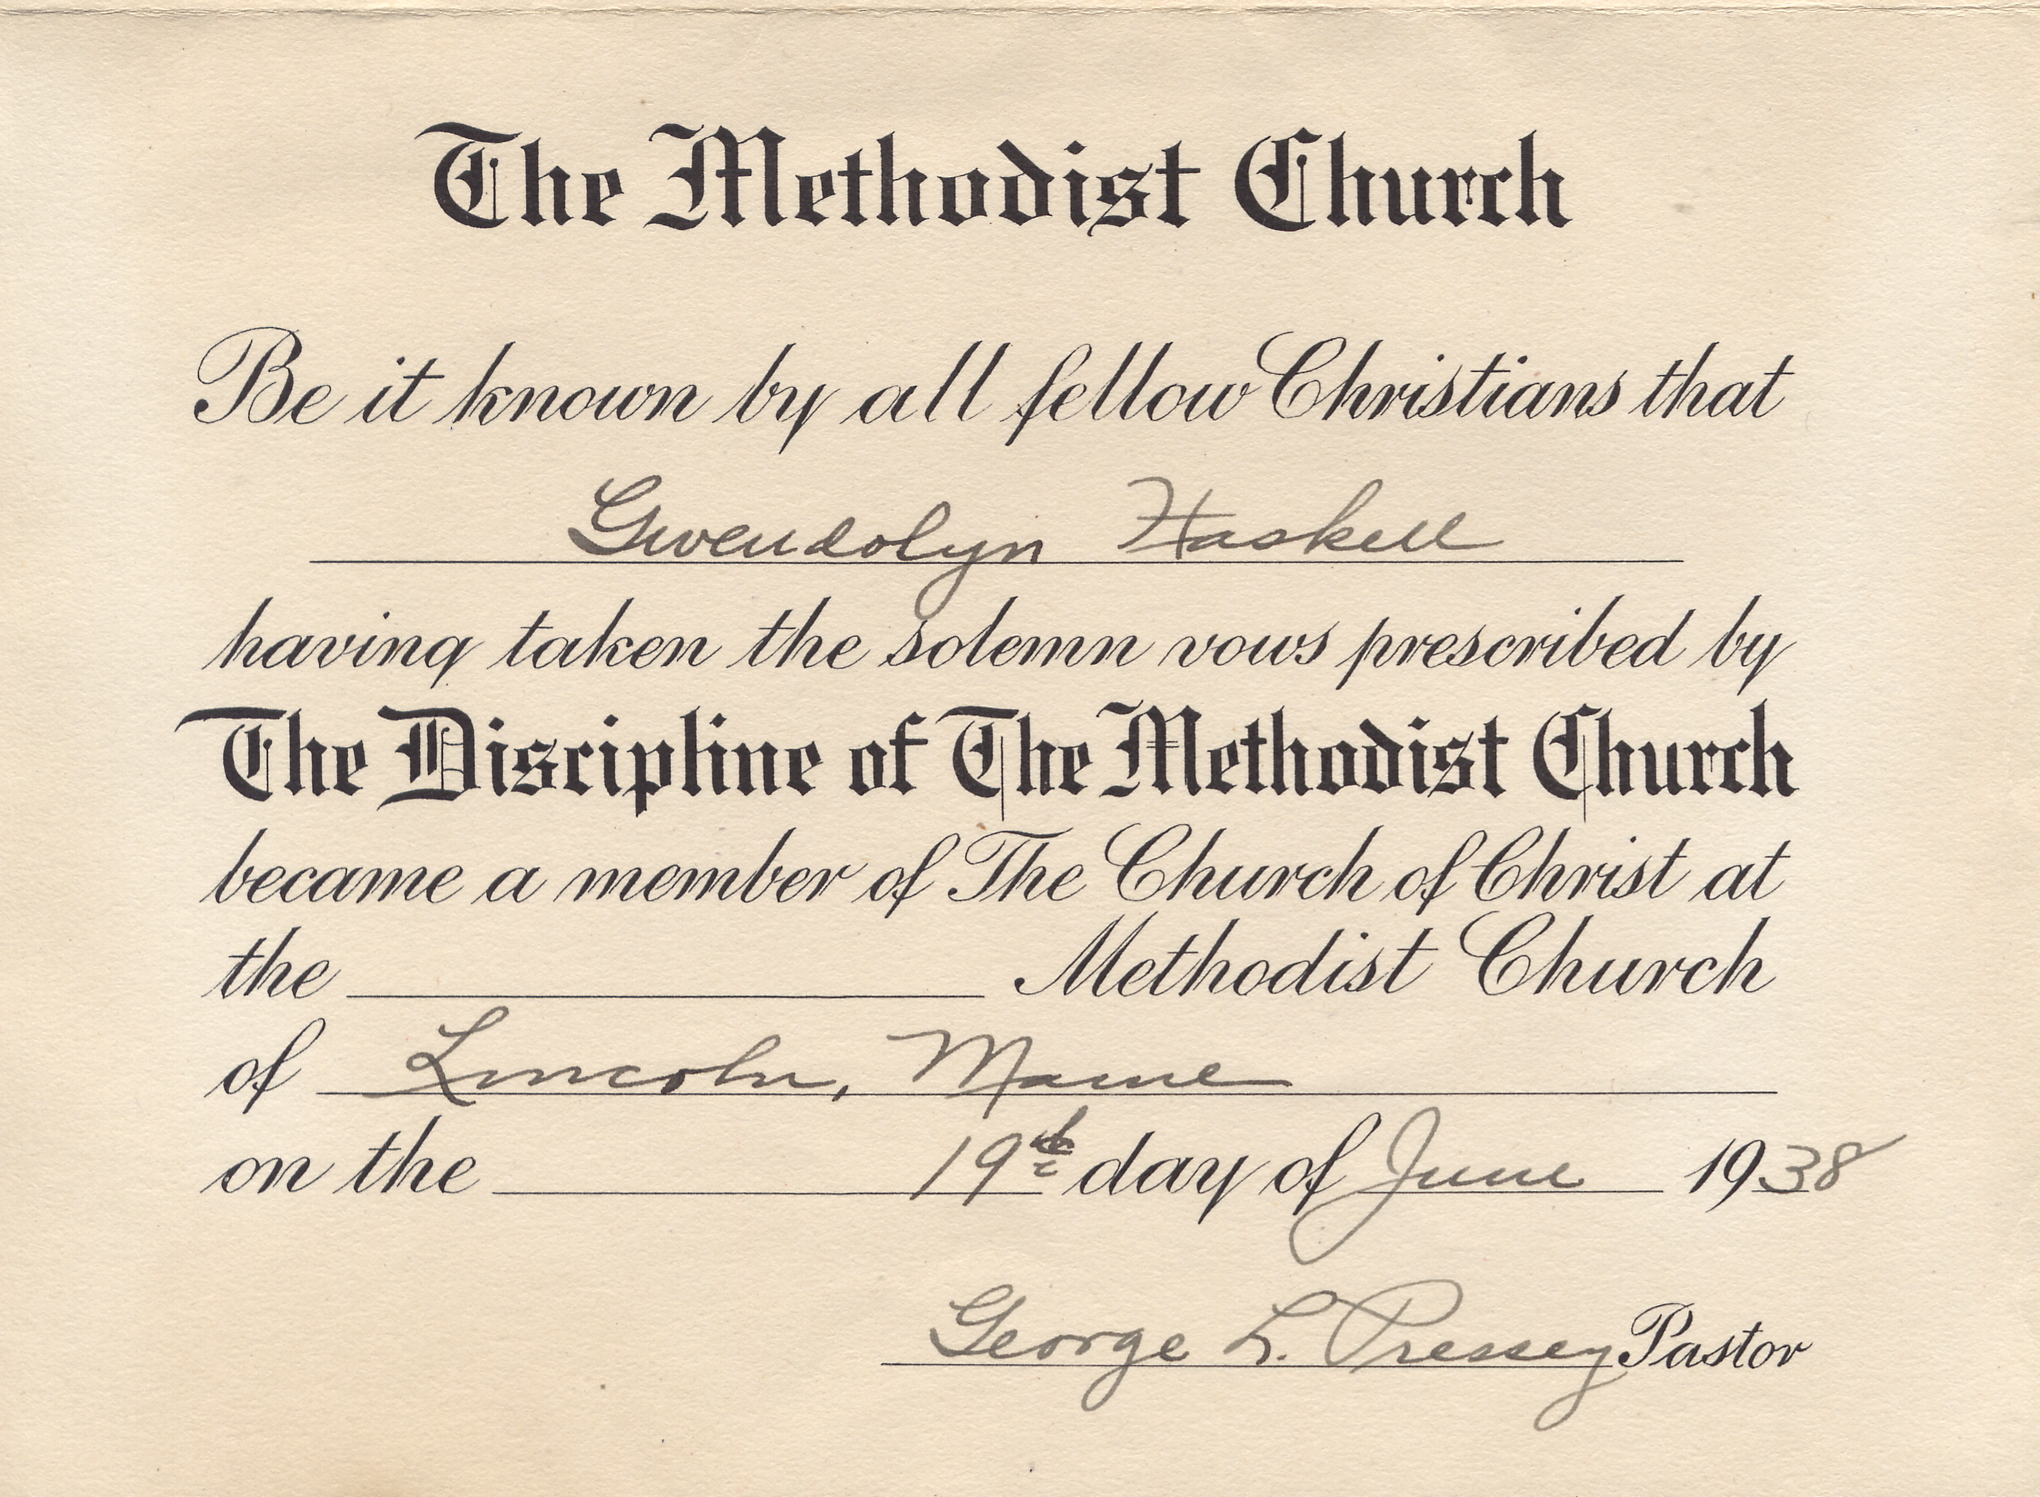 The Methodist Church
Be it known by all fellow Christians that
Gwendolyn Haskell
having taken the solemn vows prescribed by
The Discipline of The Methodist Church
became a member of The Church of Christ at
the Methodist Church
of Lincoln, Maine
on the 19th day of June 1938
George L. Pressey Pastor